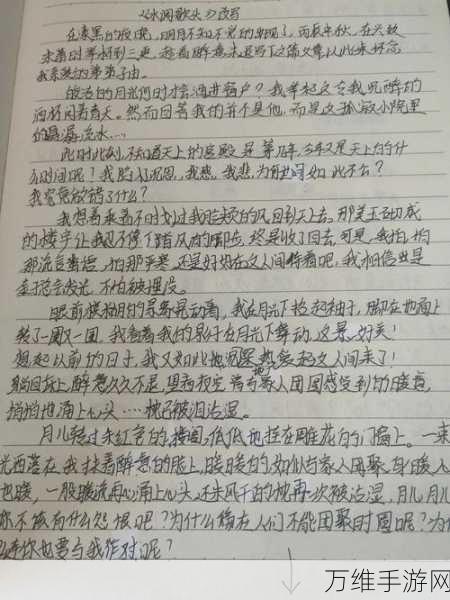 《水调歌头》改写
在漆黑的夜晚,明月不知不觉的出现了,丙辰中秋,在兴致
来着时举杯到三更,趁着醉意未退写下之篇文章以此来怀念
我亲爱的弟弟子由。
皎洁的月光何时才会洒进窗户?我举起这
酒杯问着青天。然而回答我的并不是他,而是这孤寂小院里
的潺潺流水…
此时此刻,不知道天上的宫殿是第几年,今年又是天上的什
么时间呢?我陷入沉思,我想,我悲,为何世间如此不公?
我究竟做错了什么?
我想着乘着不时划过我脸颊的风回到天上去,那美玉砌成
的楼宇让我忍不住了踏风的脚步,终是收了回去,可是,我怕,怕
那流言蜚语,怕那严寒,还是好好在这人间待着吧,我相信也是
金子总会发光,不怕被埋没。
眼前模糊的身影晃动着,我在月光下拾起袖子,脚在地面上
转了一圈又一圈,我看着我的影子在月光下舞动,这景,好美!
想起以前的日子,我又如此地热爱起这人间来了!
躺回床上,醉意久久不退,里
悄悄地涌上心头……枕巾被泪沾湿。
月儿转过朱红色的楼阁,低低地挂在雕花的门窗上。一束
光洒落在我抹着醉意的脸上,暖暖的,如似与家人团聚,身暖,心
也暖,一股暖流再次涌上心头,还未风干的枕巾再次被沾湿,月儿,月儿
你不该有什么怨恨吧?为什么偏在人们不能团聚时圆呢?为什
么连你也要与我作对呢?
万维手游网